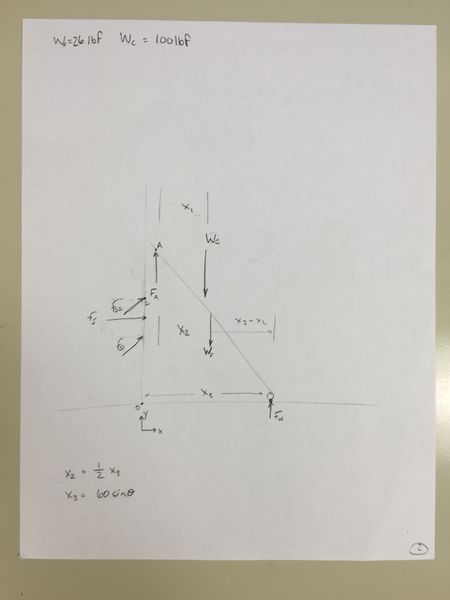 W_f=26 lbf W_c = 100 lbf
x_1
A
W_c
F_A
F_B2
F_s
x_2
x_3 - x_2
W_f
F_B1
x_3
o
F_w
y
x
x_2 = 1/2 x_3
x_3 = 60 sinθ
2